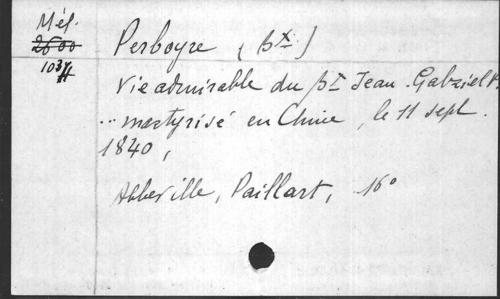 Mél.
2600
103
Perboyre (Bx)
Vie admirable du Bx Jean-Gabriel P.
... martyrisé en Chine, le 11 sept.
1840,
Abbeville, Paillart, 16°